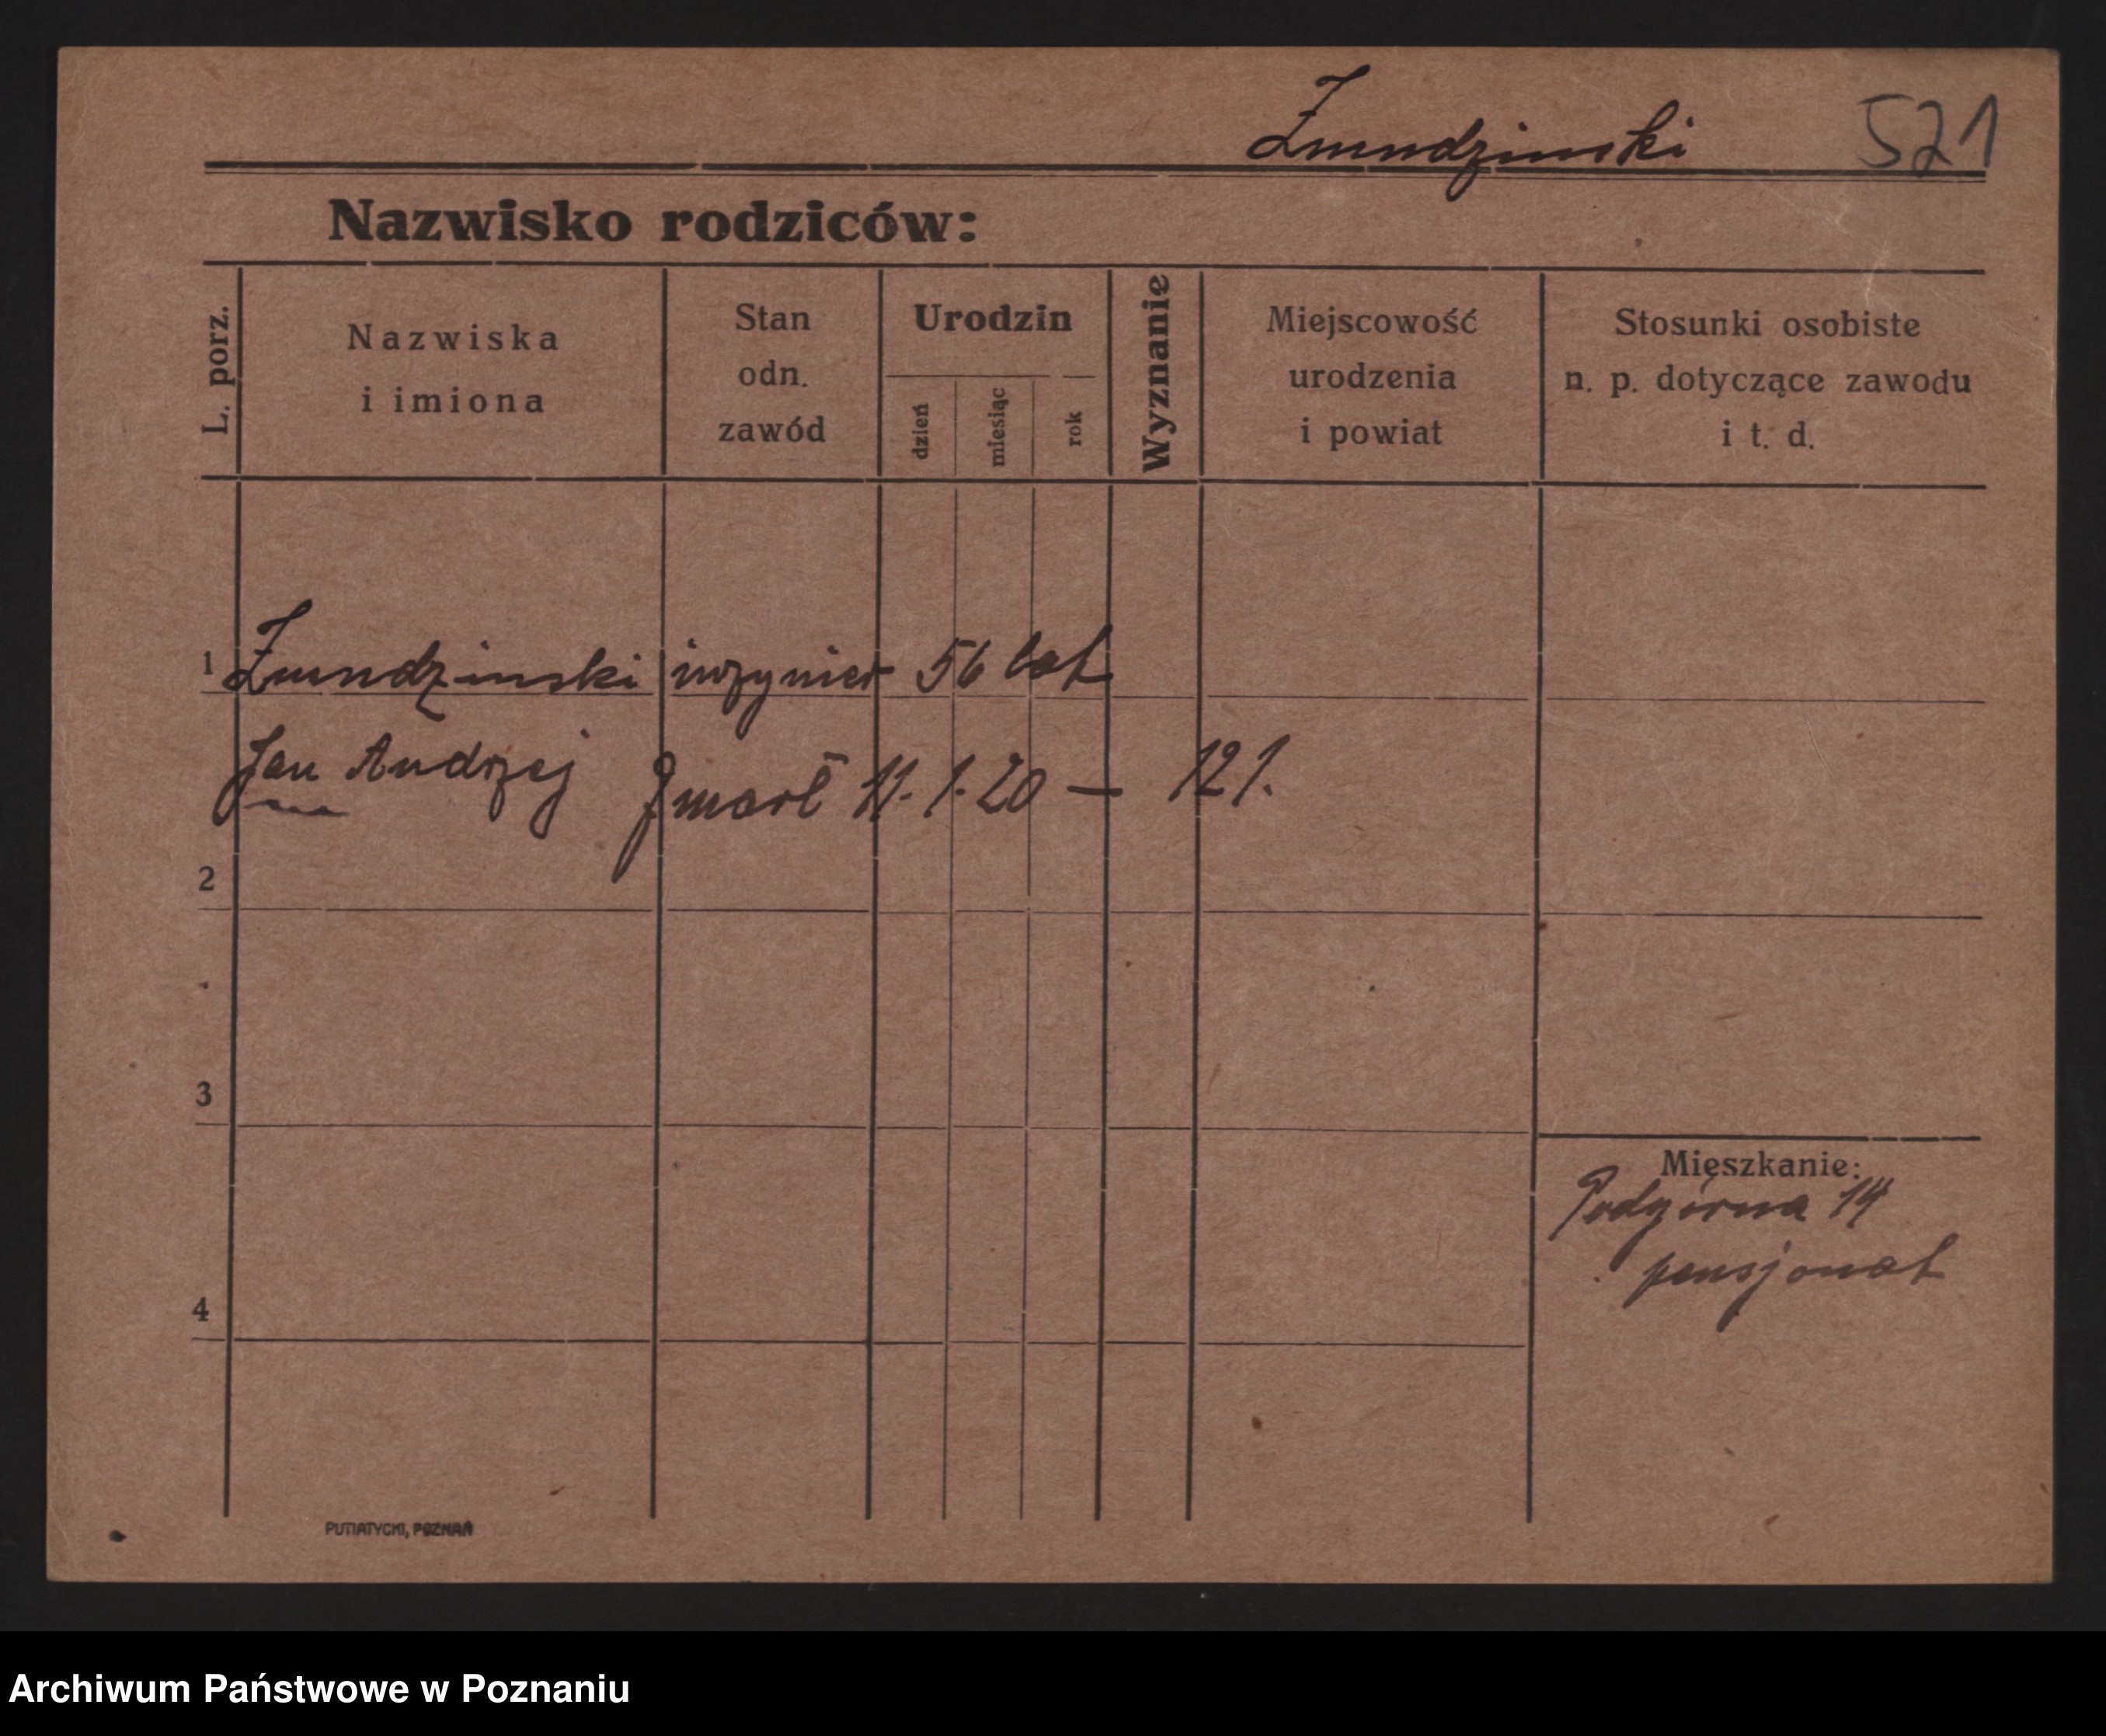 Żmudzinski 521
Nazwisko rodziców:
L. porz.
Nazwiska
i imiona
Stan
odn.
zawód
Urodzin
dzień
miesiąc
rok
Wyznanie
Miejscowość
urodzenia
i powiat
Stosunki osobiste
n. p. dotyczące zawodu
i t. d.
1 Żmudzinski inżynier 56 lat
Jan Andrzej zmarł 11. 1. 20 — 121.
2
3
Mieszkanie:
Podgórna 14
pensjonat
4
PUTIATYCKI, POZNAŃ
Archiwum Państwowe w Poznaniu